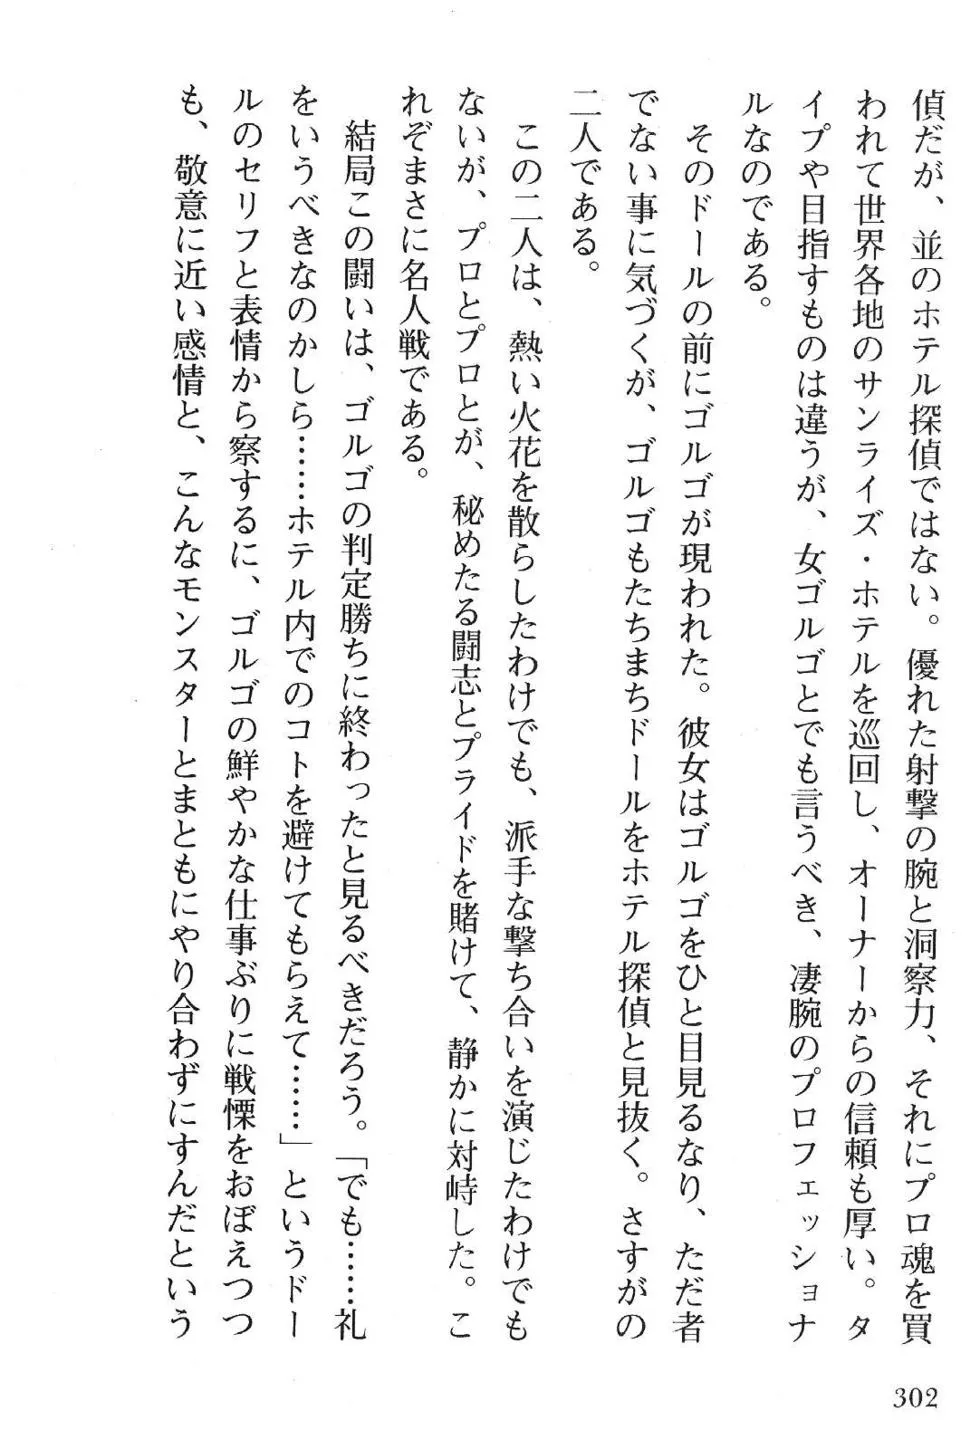 偵だが、並のホテル探偵ではない。優れた射撃の腕と洞察力、それにプロ魂を買
われて世界各地のサンライズ・ホテルを巡回し、オーナーからの信頼も厚い。タ
イプや目指すものは違うが、女ゴルゴとでも言うべき、凄腕のプロフェッショナ
ルなのである。
そのドールの前にゴルゴが現われた。彼女はゴルゴをひと目見るなり、ただ者
でない事に気づくが、ゴルゴもたちまちドールをホテル探偵と見抜く。さすがの
二人である。
この二人は、熱い火花を散らしたわけでも、派手な撃ち合いを演じたわけでも
ないが、プロとプロとが、秘めたる闘志とプライドを賭けて、静かに対峙した。こ
れぞまさに名人戦である。
結局この闘いは、ゴルゴの判定勝ちに終わったと見るべきだろう。「でも……礼
をいうべきなのかしら……ホテル内でのコトを避けてもらえて……」というドー
ルのセリフと表情から察するに、ゴルゴの鮮やかな仕事ぶりに戦慄をおぼえつつ
も、敬意に近い感情と、こんなモンスターとまともにやり合わずにすんだという
302